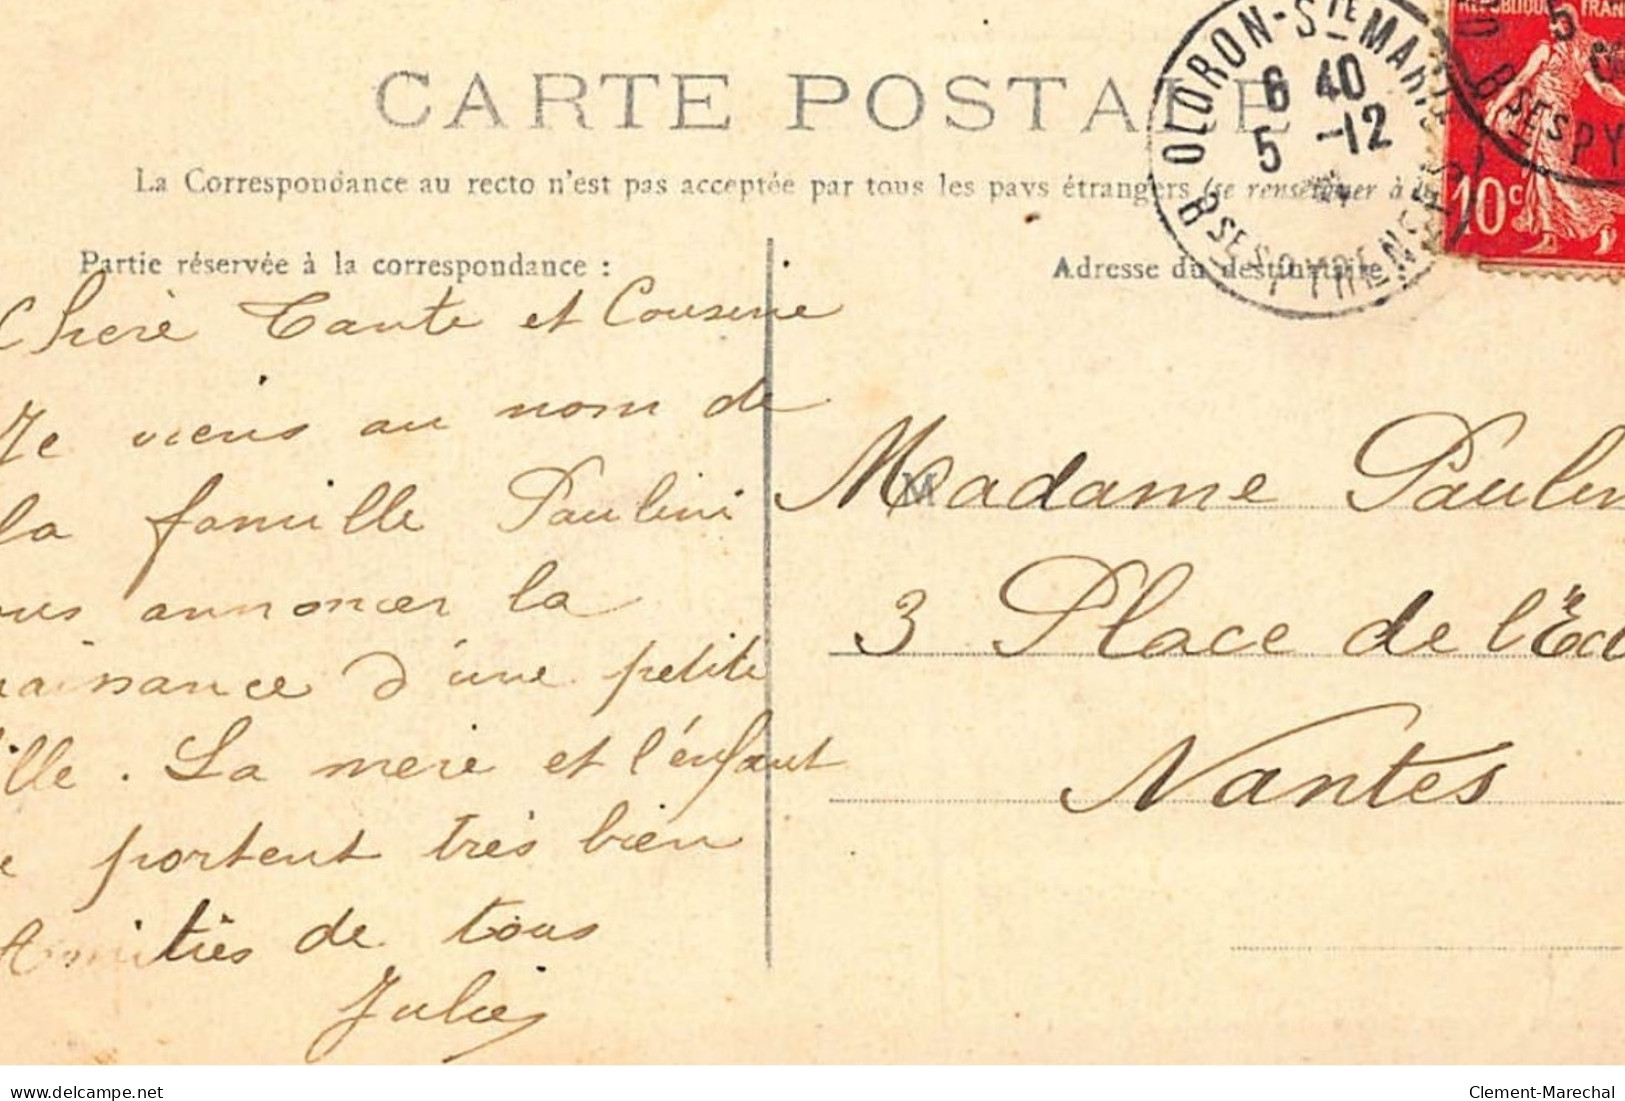 CARTE POSTALE
La Correspondance au recto n'est pas acceptée par tous les pays étrangers (se renseigner à la
OLORON-STE MARIE
6 40
5 -12
BSES PYRÉNÉES
RÉPUBLIQUE FRAN
10c
5
BSES PY
Partie réservée à la correspondance :
Adresse du destinataire
Chère Tante et Cousine
Je viens au nom de
la famille Paulini
ous annoncer la
naissance d'une petite
ille. La mère et l'énfant
e portent très bien
Amitiés de tous
Julie
Madame Paulin
3 Place de l'Ed
Nantes
delcampe.net
Clement-Marechal